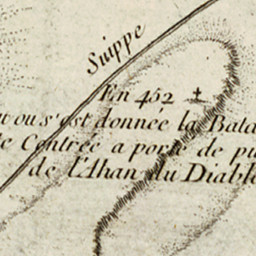 Suippe
En 452 ‡
ou s'est donnée la Bata
Contrée a porté de pu
de l'Ahan du Diable